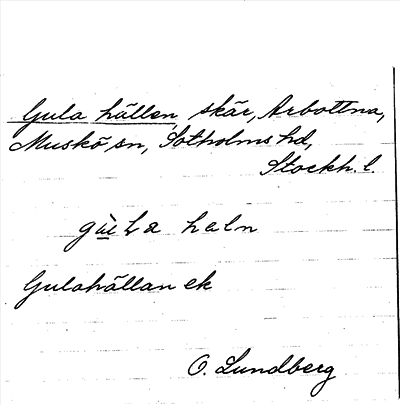 Gula hällen, skär, Arbottna,
Muskö sn, Sotholms hd,
Stockh. l.
gùLa haln
Gulahällan ek
O. Lundberg